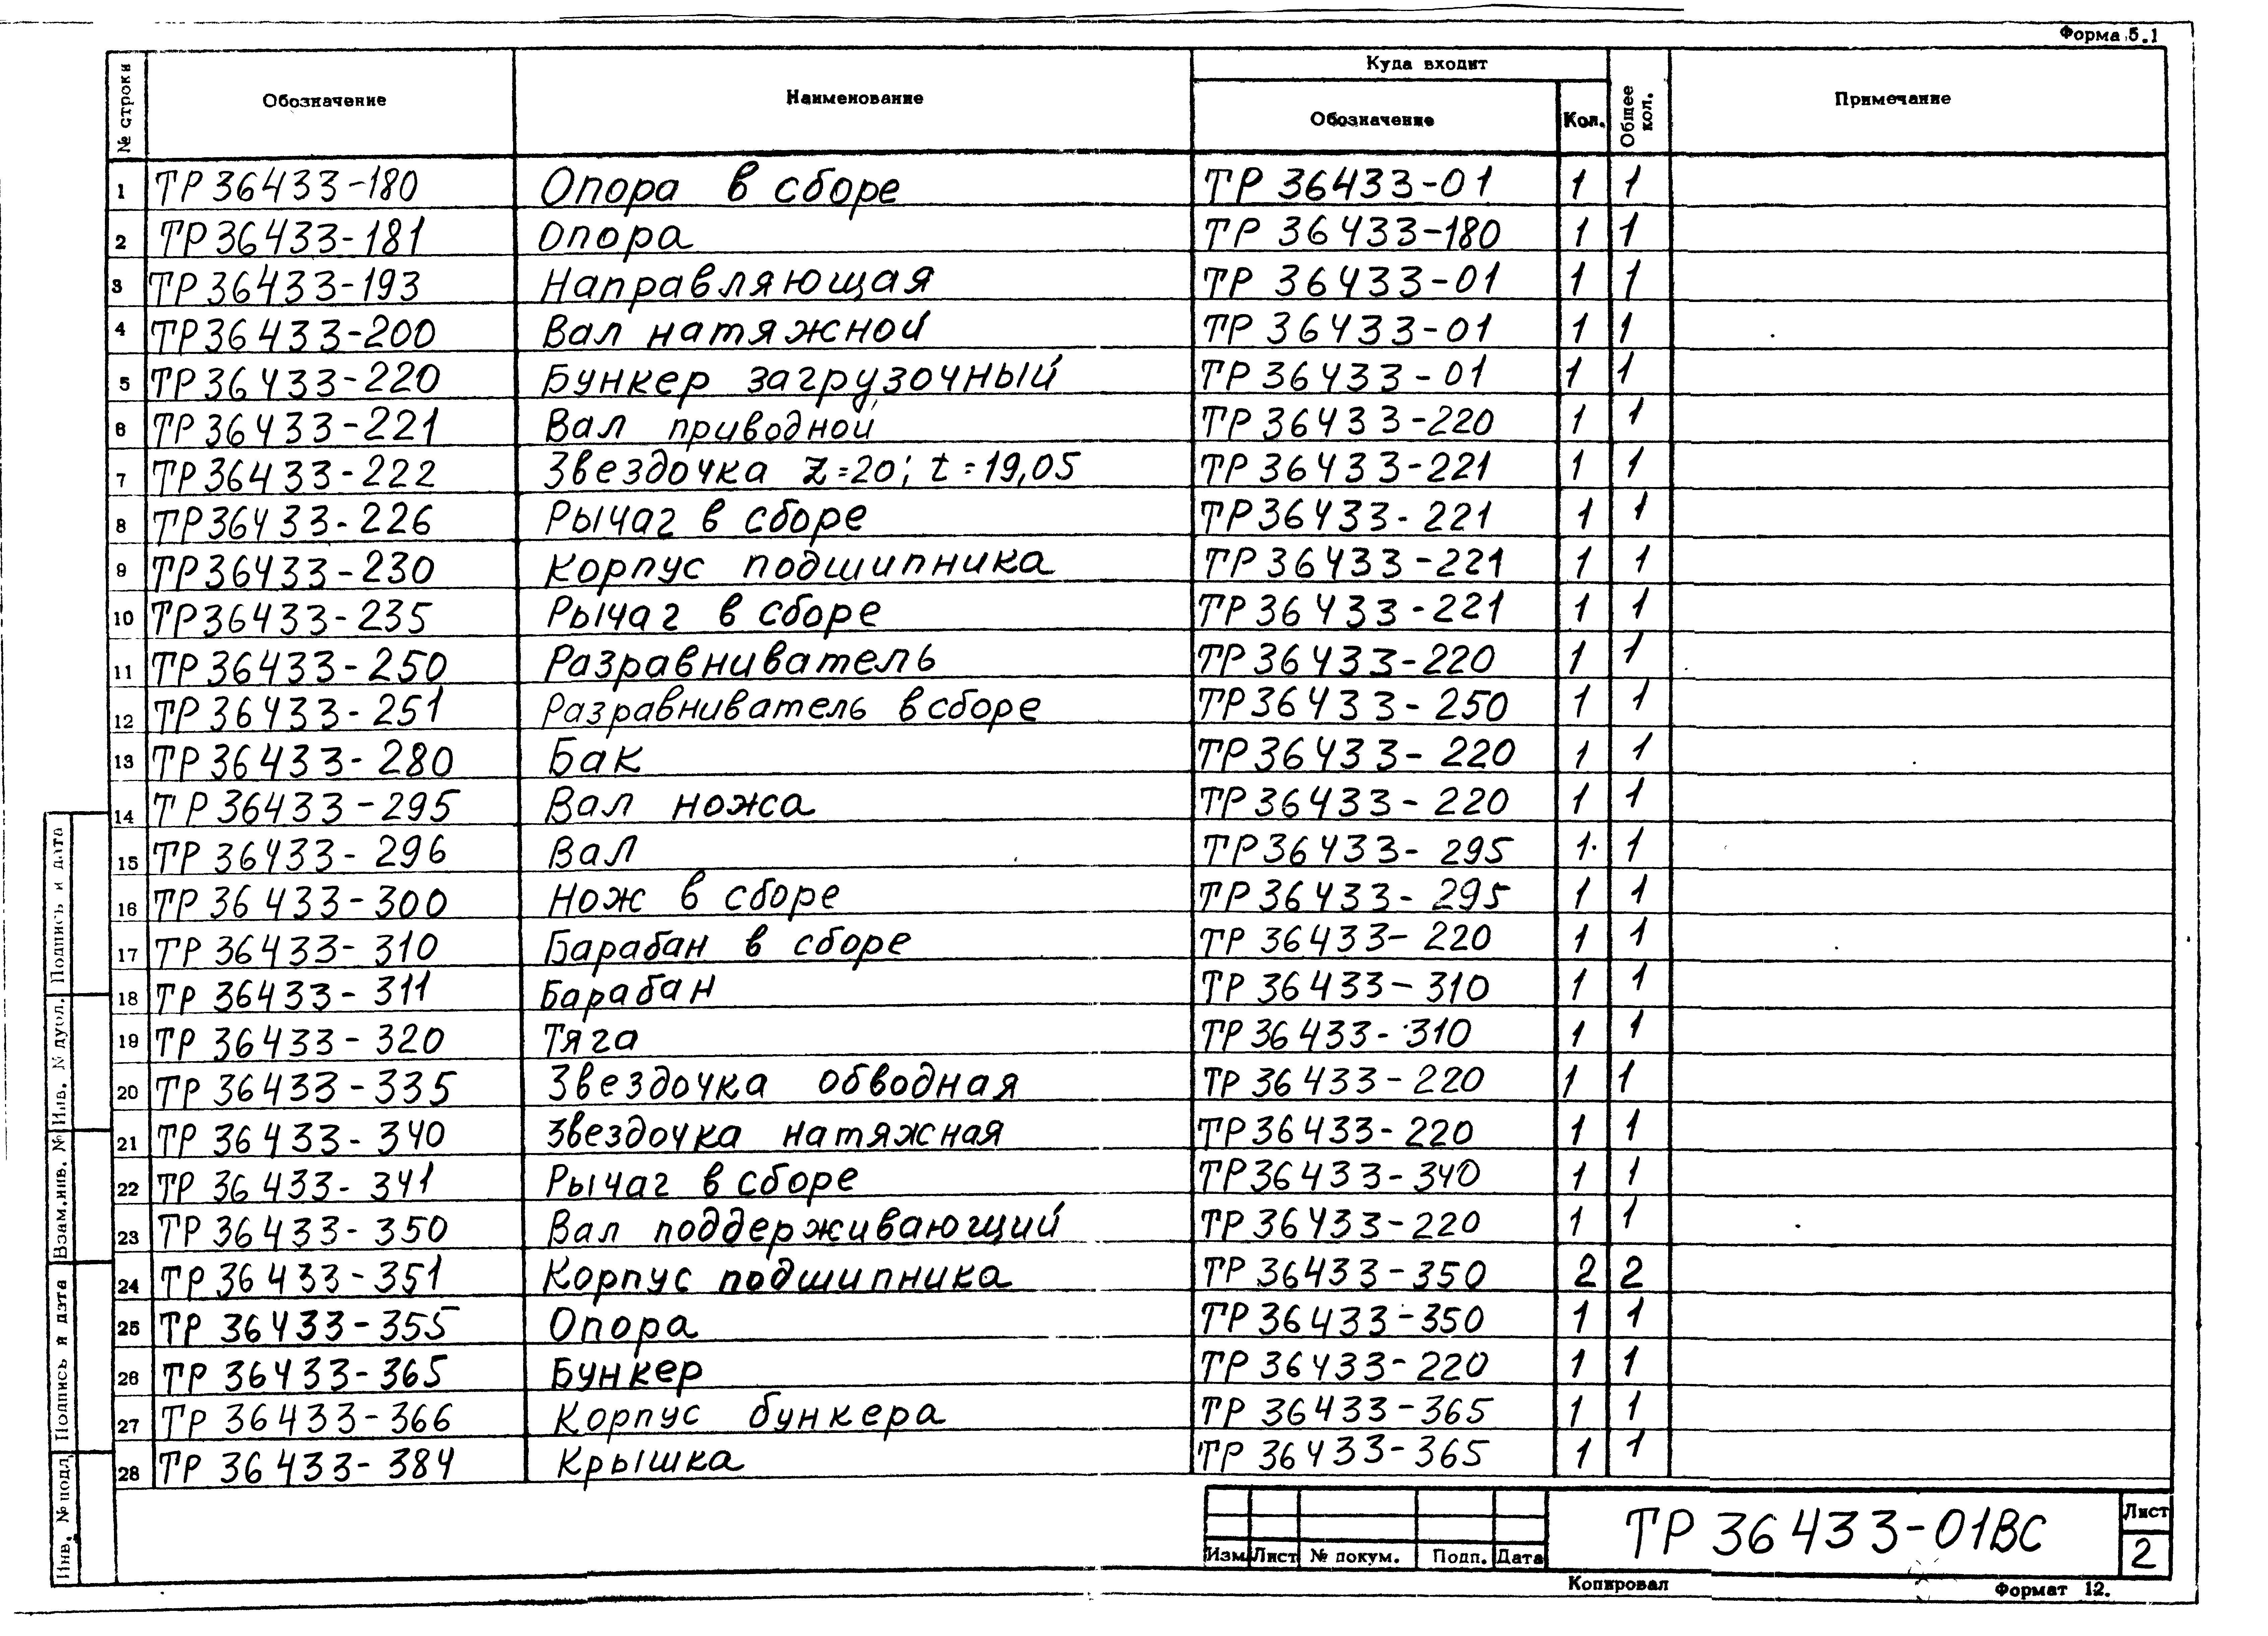 Форма 5.1
№ строки Обозначение Наименование Куда входит Обозначение Кол. Общее кол. Примечание
1 ТР 36433-180 Опора в сборе ТР 36433-01 1 1
2 ТР 36433-181 Опора ТР 36433-180 1 1
3 ТР 36433-193 Направляющая ТР 36433-01 1 1
4 ТР 36433-200 Вал натяжной ТР 36433-01 1 1
5 ТР 36433-220 Бункер загрузочный ТР 36433-01 1 1
6 ТР 36433-221 Вал приводной ТР 36433-220 1 1
7 ТР 36433-222 Звездочка z=20; t=19,05 ТР 36433-221 1 1
8 ТР 36433-226 Рычаг в сборе ТР 36433-221 1 1
9 ТР 36433-230 Корпус подшипника ТР 36433-221 1 1
10 ТР 36433-235 Рычаг в сборе ТР 36433-221 1 1
11 ТР 36433-250 Разравниватель ТР 36433-220 1 1
12 ТР 36433-251 Разравниватель в сборе ТР 36433-250 1 1
13 ТР 36433-280 Бак ТР 36433-220 1 1
14 ТР 36433-295 Вал ножа ТР 36433-220 1 1
15 ТР 36433-296 Вал ТР 36433-295 1 1
16 ТР 36433-300 Нож в сборе ТР 36433-295 1 1
17 ТР 36433-310 Барабан в сборе ТР 36433-220 1 1
18 ТР 36433-311 Барабан ТР 36433-310 1 1
19 ТР 36433-320 Тяга ТР 36433-310 1 1
20 ТР 36433-335 Звездочка обводная ТР 36433-220 1 1
21 ТР 36433-340 Звездочка натяжная ТР 36433-220 1 1
22 ТР 36433-341 Рычаг в сборе ТР 36433-340 1 1
23 ТР 36433-350 Вал поддерживающий ТР 36433-220 1 1
24 ТР 36433-351 Корпус подшипника ТР 36433-350 2 2
25 ТР 36433-355 Опора ТР 36433-350 1 1
26 ТР 36433-365 Бункер ТР 36433-220 1 1
27 ТР 36433-366 Корпус бункера ТР 36433-365 1 1
28 ТР 36433-384 Крышка ТР 36433-365 1 1
Инв. № подл. Подпись и дата Взам.инв. № Инв. № дубл. Подпись и дата
Изм Лист № докум. Подп. Дата
ТР 36433-01ВС
Лист
2
Копировал
Формат 12.